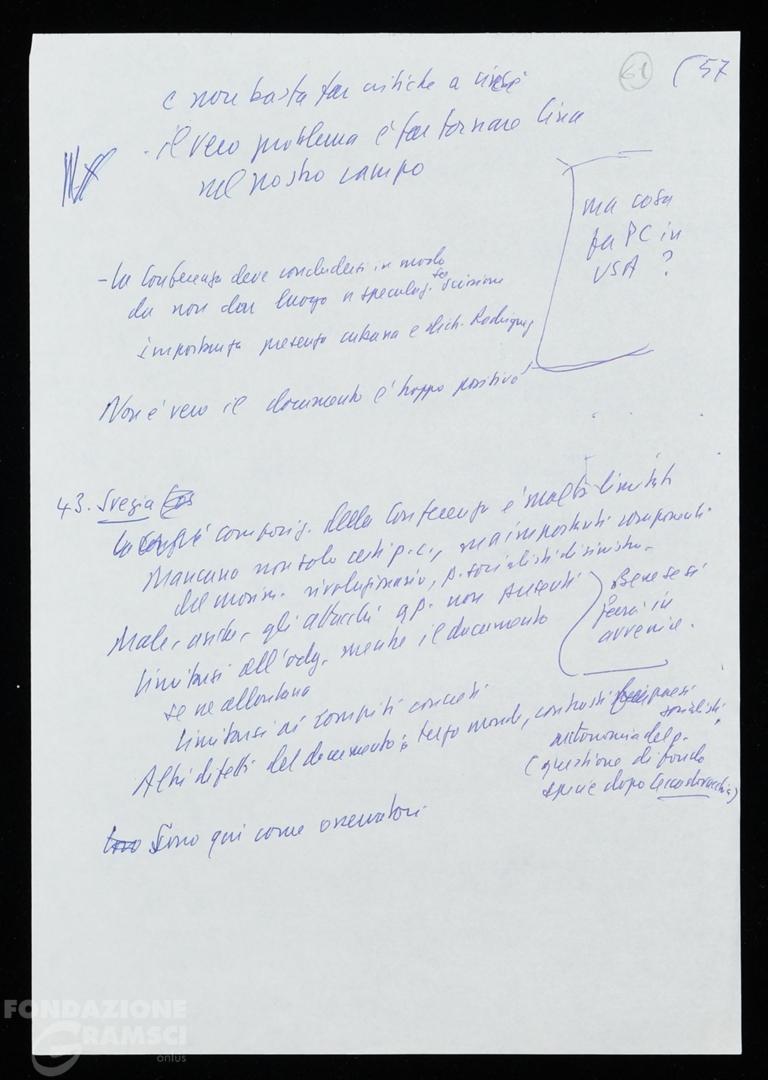 61 (57
e non basta far critiche a cinesi
- il vero problema è far tornare Cina
nel nostro campo
ma cosa
fa PC in
USA ?
- La Conferenza deve concludersi in modo
da non dar luogo a speculaz. scissione
importanza presenza cubana e dich. Rodriguez
Non è vero il documento è troppo positivo
43. Svezia
composiz. della Conferenza è molto limitata
Mancano non solo certi p.c., ma importanti componenti
del movim. rivoluzionario, p. socialisti di sinistra.
Male, anche, gli attacchi a p. non presenti
Limitarsi all'odg. mentre il documento
se ne allontana
Bene se si
farà in
avvenire.
Limitarsi ai compiti concreti
Altri difetti del documento: terzo mondo, contrasti paesi
socialisti,
autonomia dei p.
(questione di fondo
specie dopo Cecoslovacchia)
Sono qui come osservatori
FONDAZIONE
GRAMSCI
onlus